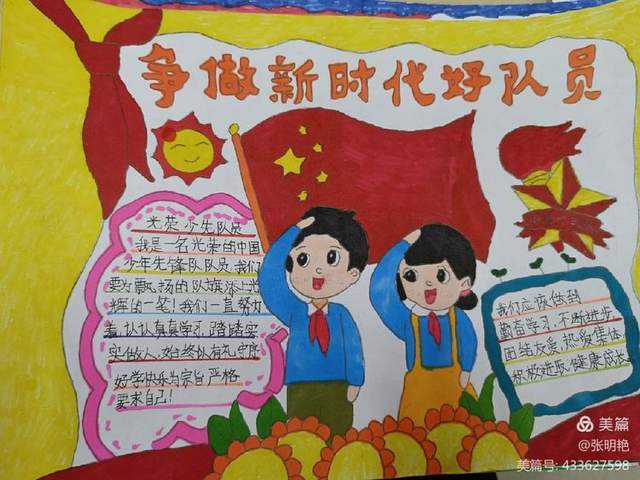 争做新时代好队员
光荣少先队员
我是一名光荣的中国
少年先锋队队员,我们
要为飘扬的队旗添上光
辉的一笔!我们一直努力
着,认认真真学习,踏踏实
实做人,始终以有礼守序
好学快乐为宗旨严格
要求自己!
我们应该做到
勤奋学习,不断进步
团结友爱,热爱集体
积极进取,健康成长
美篇
@张明艳
美篇号:433627598